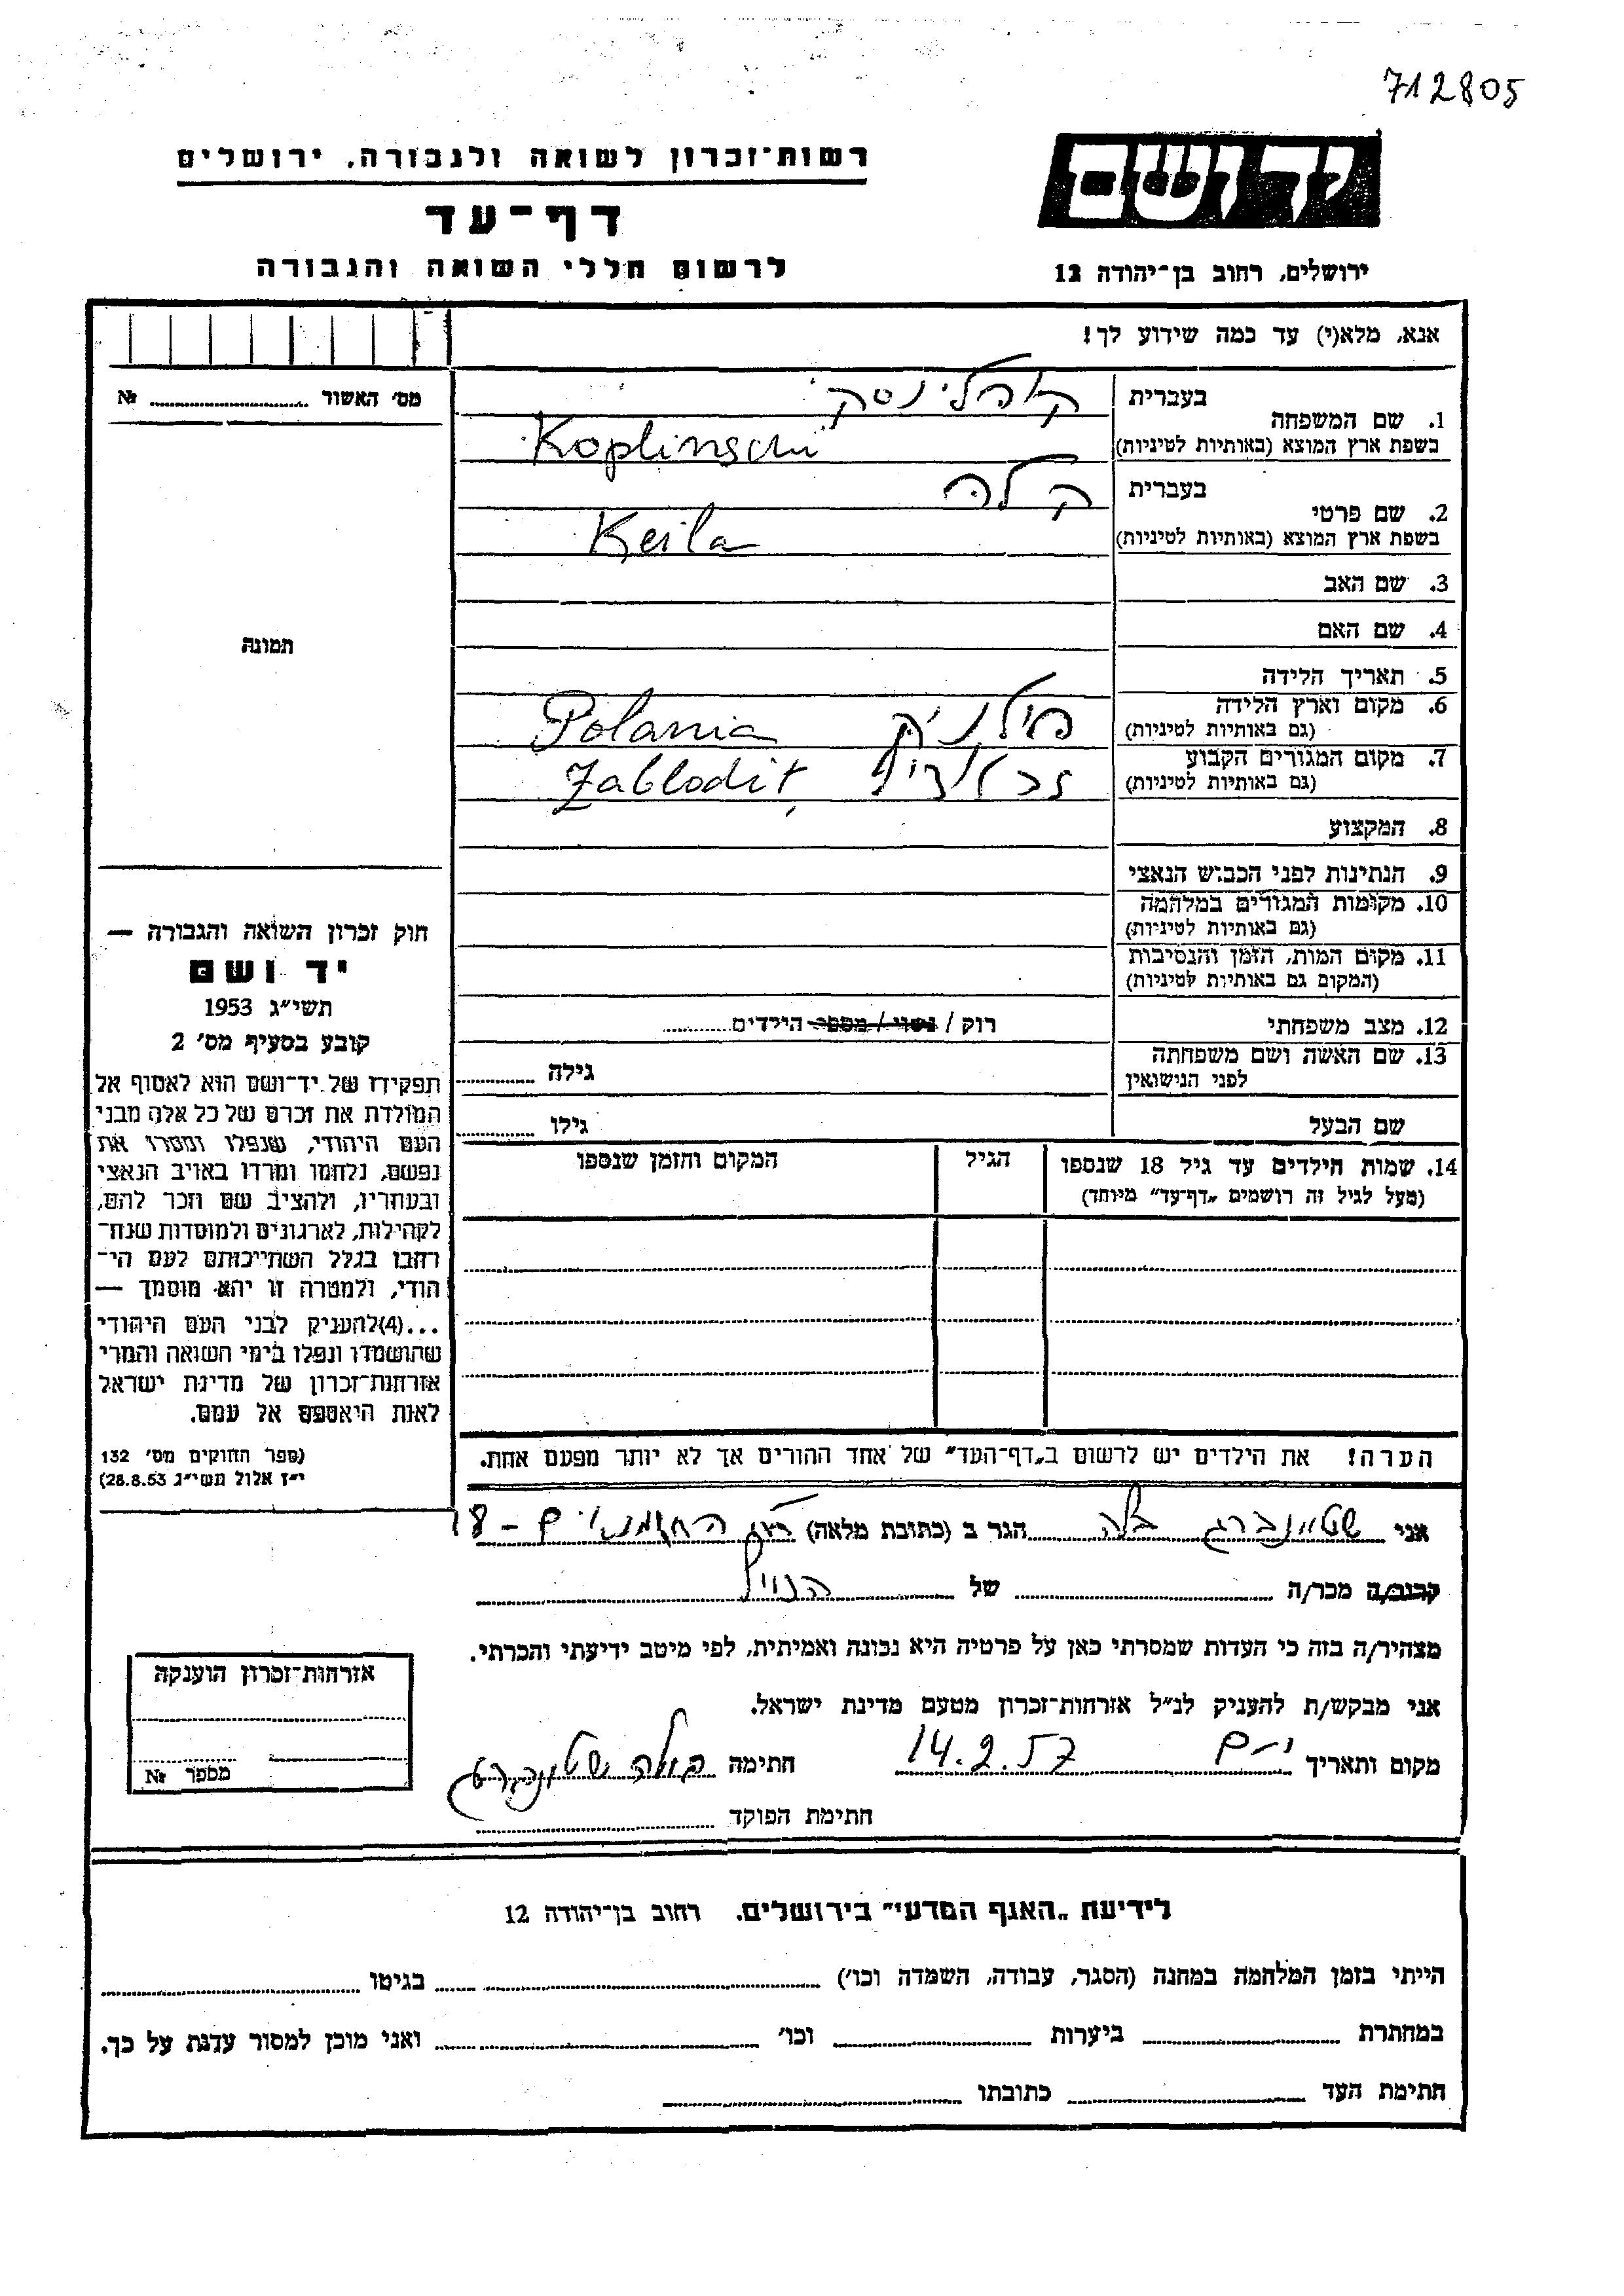 712805
יד ושם
רשות־זכרון לשואה ולגבורה, ירושלים
דף־עד
לרשום חללי השואה והגבורה
ירושלים, רחוב בן־יהודה 12
אנא, מלא(י) עד כמה שידוע לך!
מס' האשור № 
תמונה
1. שם המשפחה
בעברית
בשפת ארץ המוצא (באותיות לטיניות)
Koplinschi
2. שם פרטי
בעברית קלה
בשפת ארץ המוצא (באותיות לטיניות)
Keila
3. שם האב
4. שם האם
5. תאריך הלידה
6. מקום וארץ הלידה
(גם באותיות לטיניות)
Polania
7. מקום המגורים הקבוע
(גם באותיות לטיניות)
Zablodit
8. המקצוע
9. הנתינות לפני הכבוש הנאצי
10. מקומות המגורים במלחמה
(גם באותיות לטיניות)
11. מקום המות, הזמן והנסיבות
(המקום גם באותיות לטיניות)
12. מצב משפחתי
רוק / נשוי / מספר הילדים
13. שם האשה ושם משפחתה
לפני הנישואין
גילה
שם הבעל
גילו
14. שמות הילדים עד גיל 18 שנספו
(מעל לגיל זה רושמים „דף־עד" מיוחד)
הגיל
המקום והזמן שנספו
הערה! את הילדים יש לרשום ב„דף־העד" של אחד ההורים אך לא יותר מפעם אחת.
חוק זכרון השואה והגבורה —
יד ושם
תשי"ג 1953
קובע בסעיף מס' 2
תפקידו של יד־ושם הוא לאסוף אל
המולדת את זכרם של כל אלה מבני
העם היהודי, שנפלו ומסרו את
נפשם, נלחמו ומרדו באויב הנאצי
ובעוזריו, ולהציב שם וזכר להם,
לקהילות, לארגונים ולמוסדות שנח־
רבו בגלל השתייכותם לעם הי־
הודי, ולמטרה זו יהא מוסמך —
...(4)להעניק לבני העם היהודי
שהושמדו ונפלו בימי השואה והמרי
אזרחות־זכרון של מדינת ישראל
לאות היאספם אל עמם.
(ספר החוקים מס' 132
י"ז אלול תשי"ג 28.8.53)
אני שטיינברג בלה הגר ב (כתובת מלאה) החשמונאים - 18
קרוב/ה מכר/ה של הנ"ל
מצהיר/ה בזה כי העדות שמסרתי כאן על פרטיה היא נכונה ואמיתית, לפי מיטב ידיעתי והכרתי.
אני מבקש/ת להעניק לנ"ל אזרחות־זכרון מטעם מדינת ישראל.
מקום ותאריך 14.2.57 חתימה
חתימת הפוקד
אזרחות־זכרון הוענקה
מספר №
לידיעת „האגף המדעי" בירושלים. רחוב בן־יהודה 12
הייתי בזמן המלחמה במחנה (הסגר, עבודה, השמדה וכו') בגיטו
במחתרת ביערות וכו' ואני מוכן למסור עדות על כך.
חתימת העד כתובתו